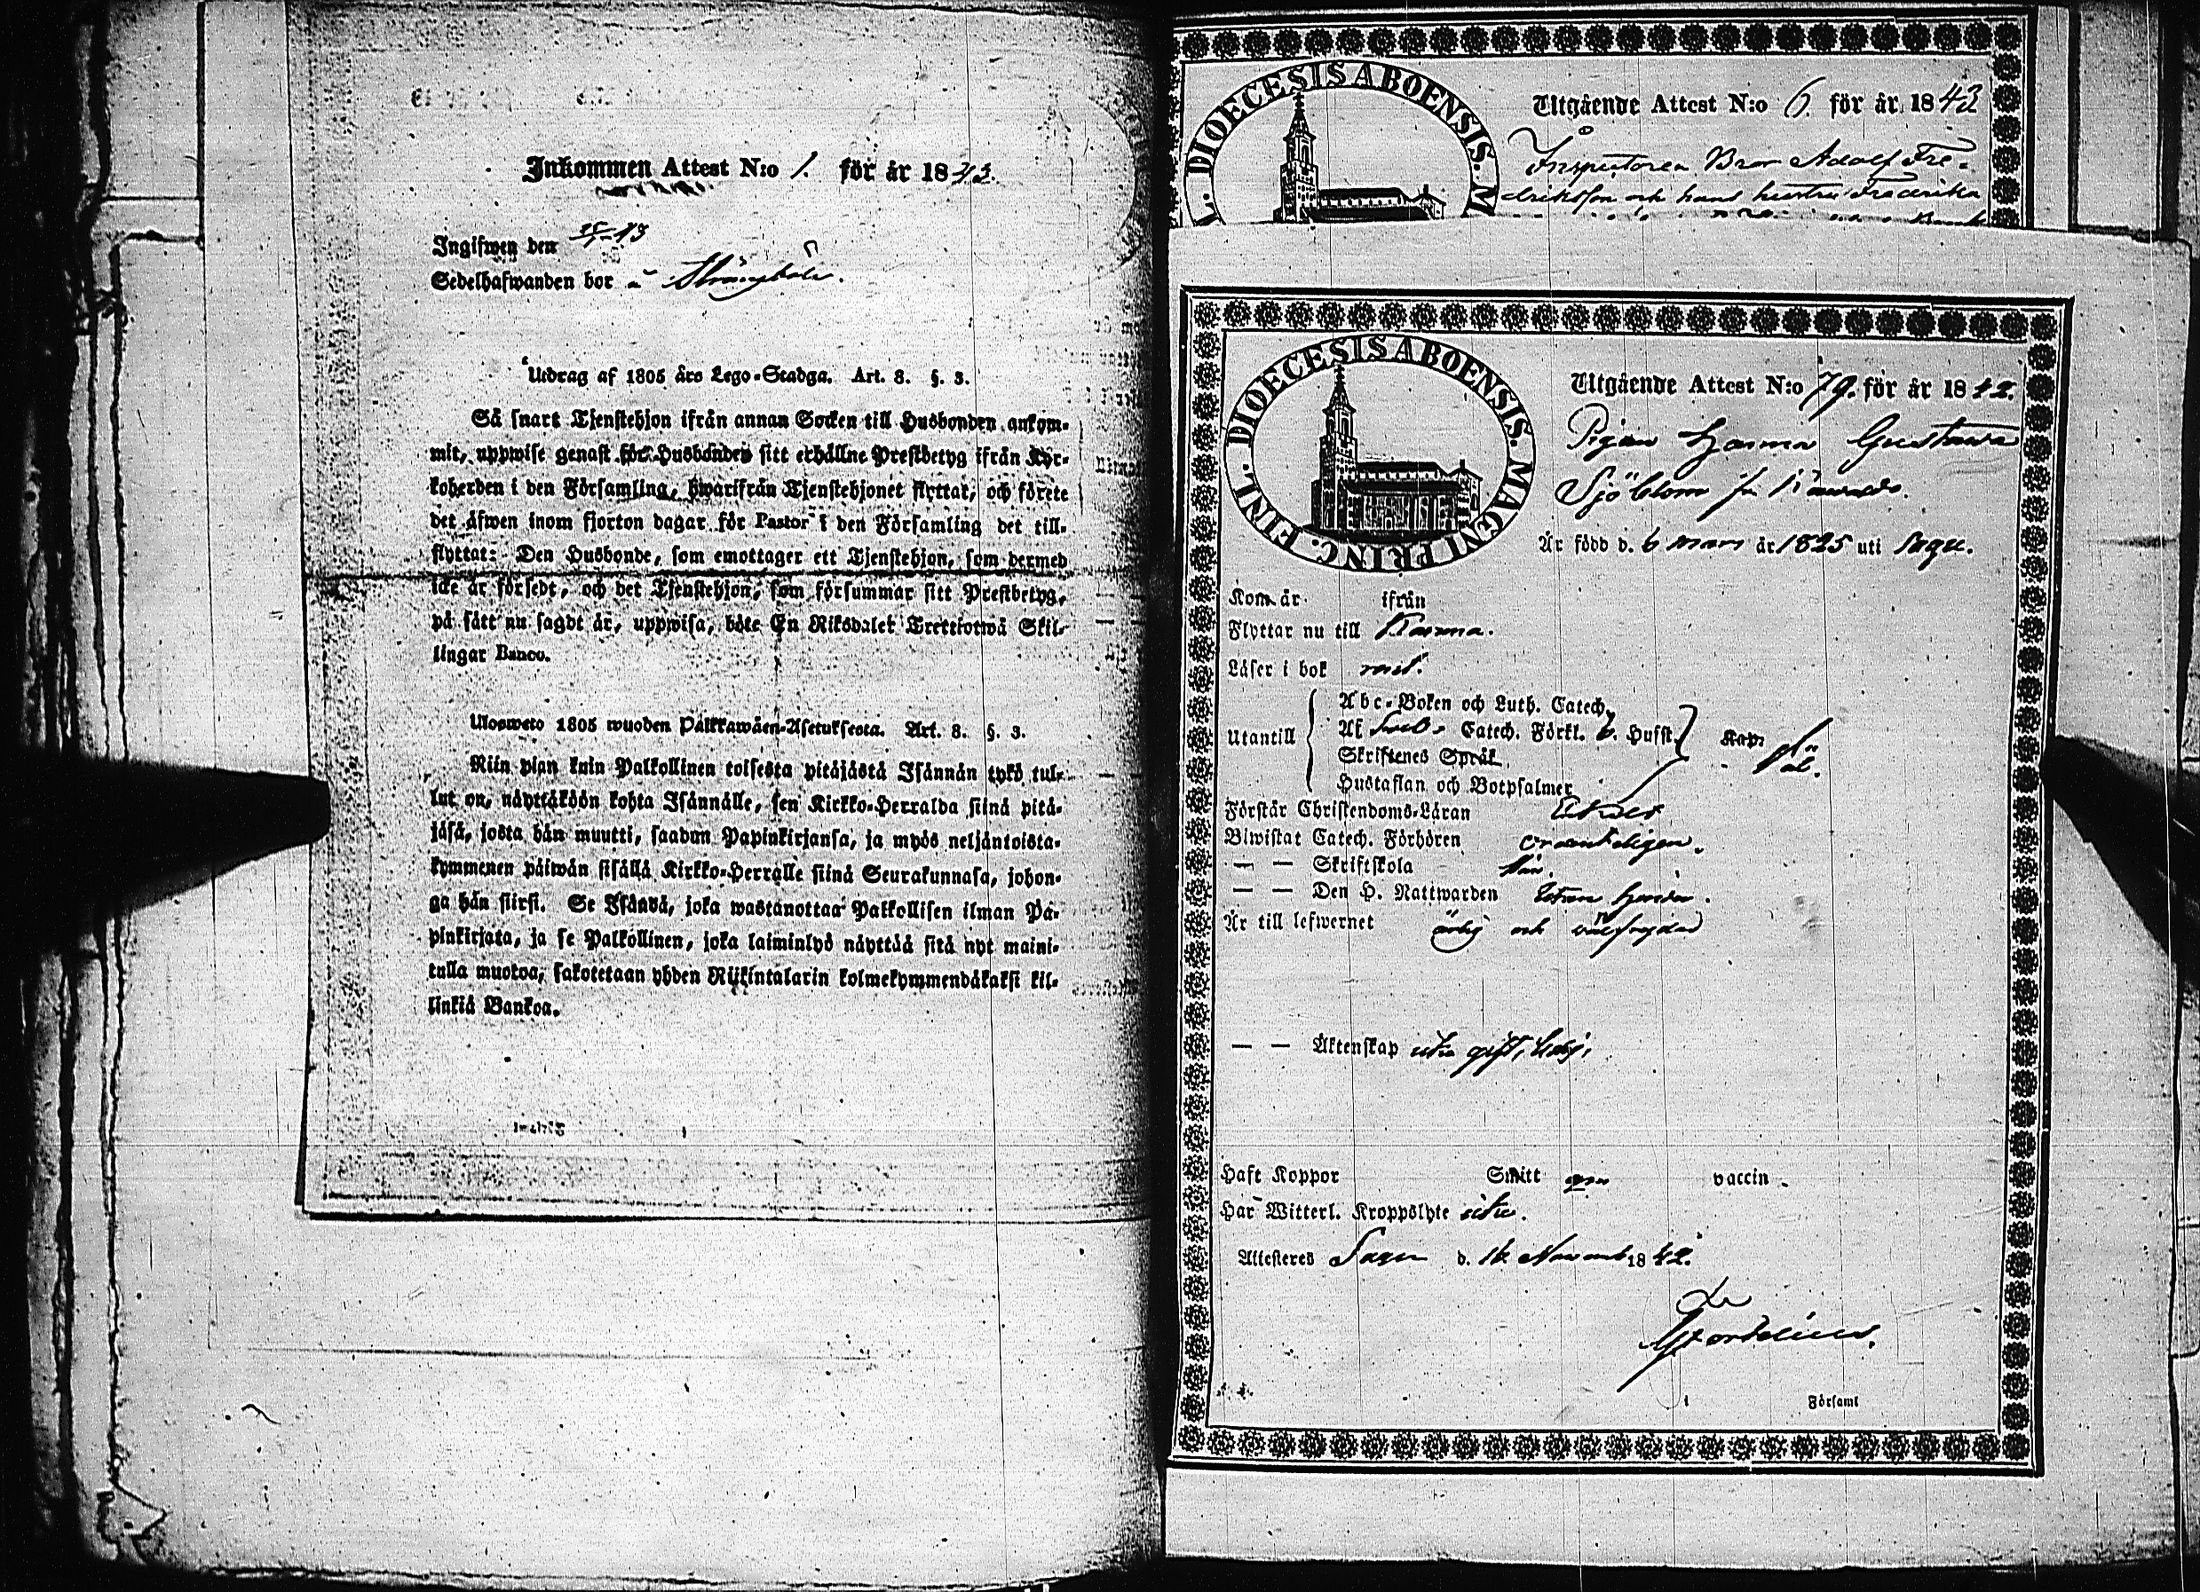 Inkommen Attest N:o 1. för år 1843.
Ingifwen den 43
Sedelhafwanden bor å
Utdrag af 1805 års Lego-Stadga. Art. 8. §. 3.
Så snart Tjenstehjon ifrån annan Socken till Husbonden ankom-
mit, uppwise genast för Husbonden sitt erhållne Prestbetyg ifrån Kyr-
koherden i den Församling, hwarifrån Tjenstehjonet flyttat, och förete
det äfwen inom fjorton dagar för Pastor i den Församling det till-
flyttat: Den Husbonde, som emottager ett Tjenstehjon, som dermed
icke är försedt, och det Tjenstehjon, som försummar sitt Prestbetyg,
på sätt nu sagdt är, uppwisa, böte En Riksdaler Trettiotwå Skil-
lingar Banco.
Ulosweto 1805 wuoden Palkkawäen-Asetuksesta. Art. 8. §. 3.
Niin pian kuin Palkollinen toisesta pitäjästä Isännän tykö tul-
lut on, näyttäköön kohta Isännälle, sen Kirkko-Herralda siinä pitä-
jäsä, josta hän muutti, saadun Papinkirjansa, ja myös neljäntoista-
kymmenen päiwän sisällä Kirkko-Herralle siinä Seurakunnasa, johon-
ga hän siirsi. Se Isändä, joka wastanottaa Palkollisen ilman Pa-
pinkirjata, ja se Palkollinen, joka laiminlyö näyttää sitä nyt maini-
tulla muotoa, sakotetaan yhden Riikintalarin kolmekymmendäkaksi kil-
linkiä Bankoa.
FINL. DIOECESIS ABOENSIS. M
Utgående Attest N:o 6. för år 1843
Inspectoren Bror Adolf Fre-
driksson och hans hustru Fredrika
FINL. DIOECESIS ABOENSIS. MAGNI PRINC.
Utgående Attest N:o 79. för år 1842.
Pigan Gustava
Sjöblom
Är född d. 6 mars år 1825 uti Sagu.
Kom år ifrån
Flyttar nu till
Läser i bok
Abc-Boken och Luth. Catech.
Utantill Af Catech. Förkl. Husst. Kap:
Skriftenes Språk
Hustaflan och Botpsalmer
Förstår Christendoms-Läran
Biwistat Catech. Förhören ordenteligen.
— — Skriftskola
— — Den H. Nattwarden
Är till lefwernet ärlig och
— — Äktenskap icke gift,
Haft Koppor Smitt vaccin
Har Witterl. Kroppslyte icke.
Attesteras Sagu d. 16 Novemb 1842.
Församl